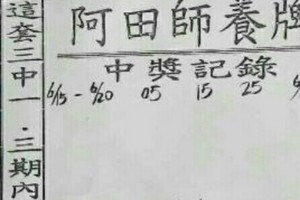 這套三中一．三期內
阿田師養牌
中獎記錄
6/15 - 6/20 05 15 25